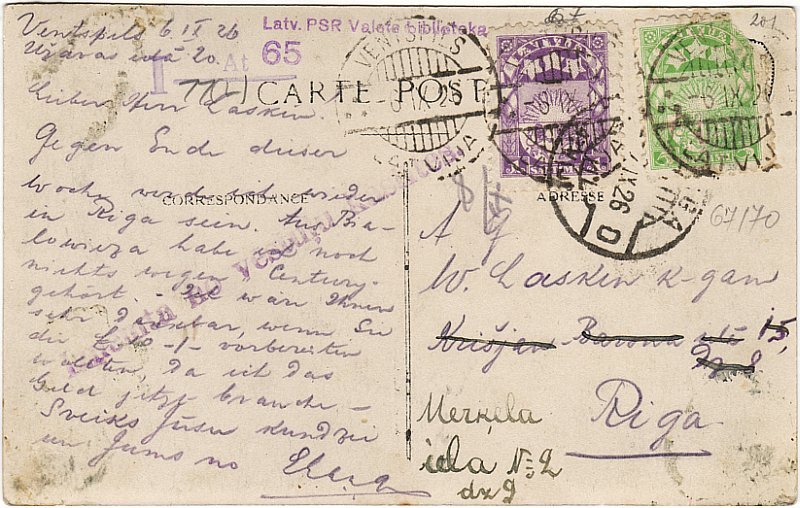 Ventspils 6 IX 26
Užavas ielā 20.
Latv. PSR Valsts bibliotēka
At 65
CARTE POSTALE
VENTSPILS
6 IX 26
LATVIJA
Lieber Herr Laskin!
Gegen Ende dieser
Woche werd ich wieder
in Riga sein. Aus Bia-
lowieza habe ich noch
nichts wegen Century
gehört. - Ich wäre Ihnen
sehr dankbar, wenn Sie
die wollten vorbereiten
wollten, da ich das
Geld jetzt brauche -
Sveiks Jūsu kundzei
un Jums no
CORRESPONDANCE
ADRESSE
LATVIJA
LATVIJA
IX 26
201
67/70
A
W. Laskin k-gam
Krišjan Barona ielā 15,
Dz 8
Riga
Merķeļa
iela № 2
dz 9